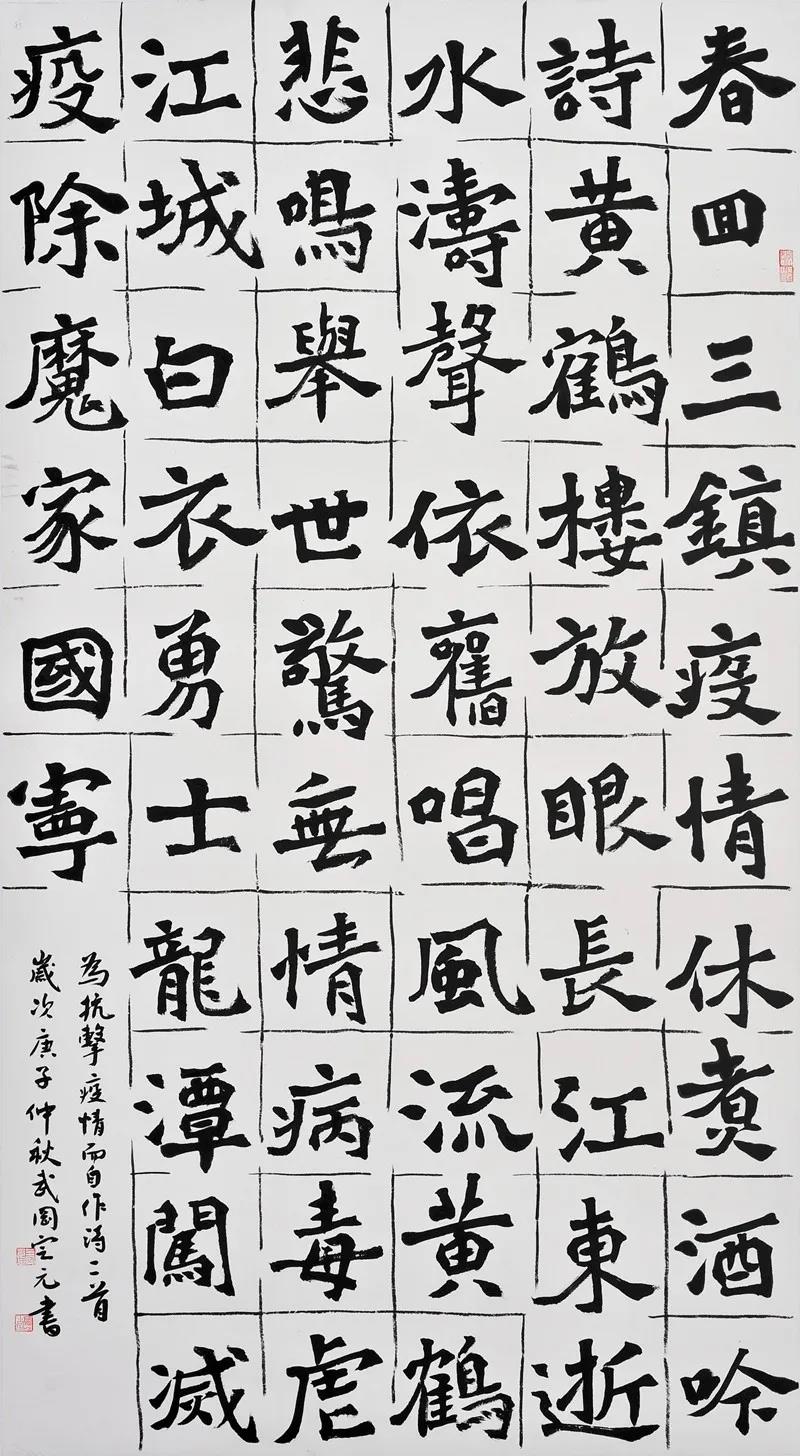 春回三鎮疫情休煑酒吟
詩黃鶴樓放眼長江東逝
水濤聲依舊唱風流黃鶴
悲鳴舉世驚無情病毒虐
江城白衣勇士龍潭闖滅
疫除魔家國寧
為抗擊疫情而自作詩二首
歲次庚子仲秋武國定元書